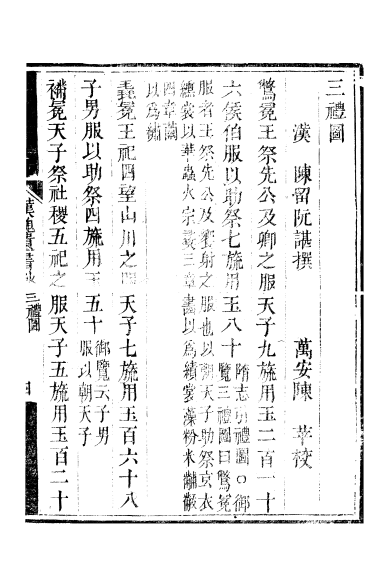 三禮圖
漢　陳留阮諶撰　　萬安陳　莘校
鷩冕王祭先公及卿之服天子九旒用玉二百一十
六侯伯服以助祭七旒用玉八十
隋志引禮圖○御
覽三禮圖曰鷩冕
服者王祭先公及饗射之服也以朝天子助祭玄衣
纁裳以華蟲火宗彝三章畫以為繢裳藻粉米黼黻
四章繭
以為繡
毳冕王祀四望山川之服天子七旒用玉百六十八
子男服以助祭四旒用玉五十
御覽云子男
服以朝天子
襧冕天子祭社稷五祀之服天子五旒用玉百二十
三禮圖
四